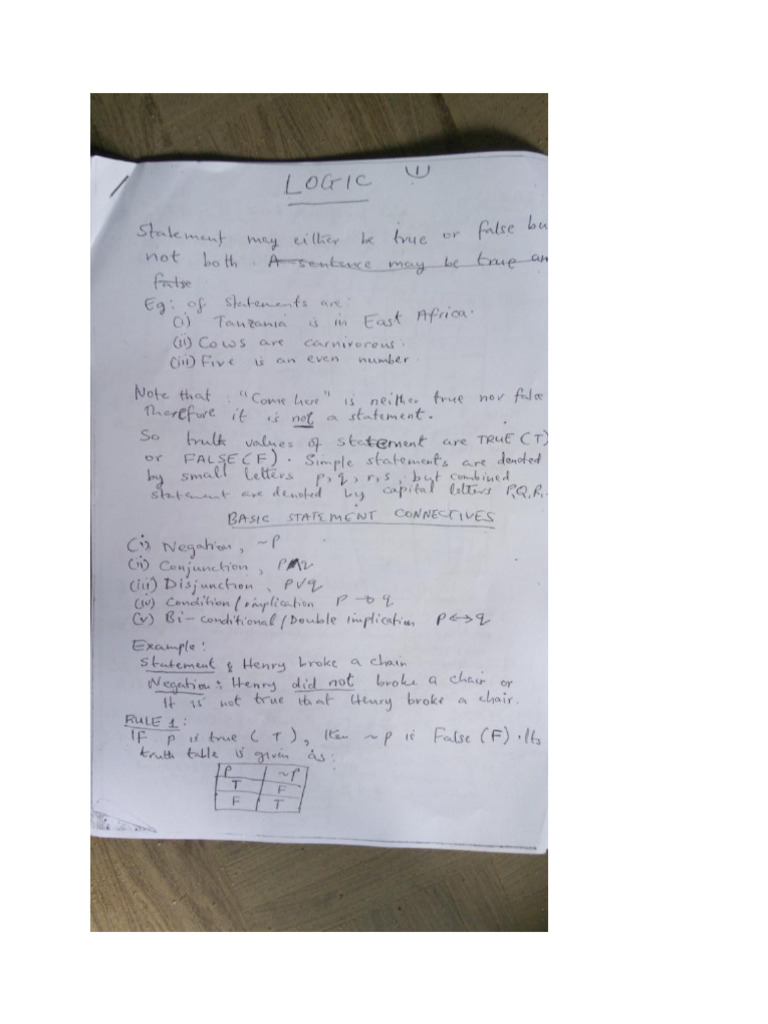 LOGIC
1
Statement may either be true or false bu
not both. A sentence may be true an
false
Eg: of statements are:
(i) Tanzania is in East Africa.
(ii) Cows are carnivorous.
(iii) Five is an even number.
Note that : "Come here" is neither true nor false
Therefore it is not a statement.
So truth values of statement are TRUE (T)
or FALSE (F). Simple statements are denoted
by small letters p, q, r, s, but combined
statement are denoted by capital letters P, Q, R.
BASIC STATEMENT CONNECTIVES
(i) Negation, ~P
(ii) Conjunction, P∧q
(iii) Disjunction, P∨q
(iv) Condition/implication P → q
(v) Bi-conditional/Double implication P ↔ q
Example:
Statement : Henry broke a chair
Negation: Henry did not broke a chair or
It is not true that Henry broke a chair.
RULE 1:
IF P is true (T), then ~p is False (F). Its
truth table is given as:
P ~P
T F
F T